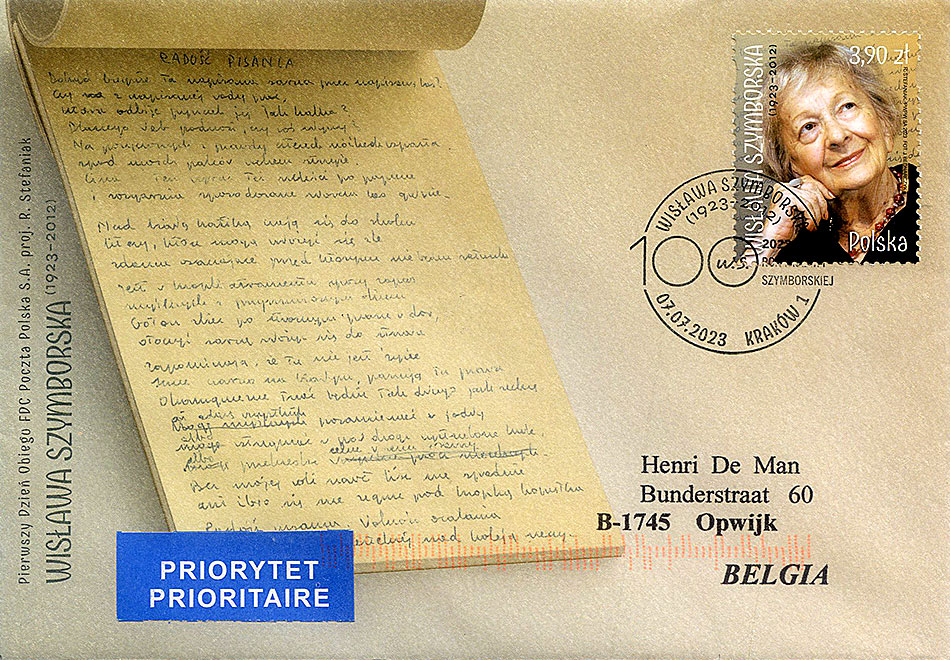 RADOŚĆ PISANIA
Dokąd biegnie ta napisana sarna przez napisany las?
Czy z napisanej wody pić,
która odbije pyszczek jej jak kalka?
Dlaczego łeb podnosi, czy coś słyszy?
Na pożyczonych z prawdy czterech nóżkach wsparta
spod moich palców uchem strzyże.
Cisza ten wyraz też szeleści po papierze
i rozgarnia spowodowane słowem las gałęzie.
Nad białą kartką czają się do skoku
litery, które mogą ułożyć się źle
zdania osaczające przed którymi nie ratunku
Jest w kropli atramentu spory zapas
myśliwych z przymrużonym okiem
zbiec po stromym piórze w dół,
otoczyć sarnę złożyć się do strzału
zapominają, że tu nie jest życie
Inne czarno na białym, panują tu prawa
Okamgnienie trwać będzie tak długo jak zechcę
Bez mojej woli nawet liść nie spadnie
ani źdźbło się nie ugnie pod kropką kopytka
Radość pisania. Możność utrwalania
Pierwszy Dzień Obiegu FDC Poczta Polska S.A. proj. R. Stefaniak
WISŁAWA SZYMBORSKA (1923-2012)
WISŁAWA SZYMBORSKA
(1923-2012)
3,90 zł
Polska
WISŁAWA SZYMBORSKA
(1923-2012)
100
W.S.
SZYMBORSKIEJ
07.07.2023 KRAKÓW 1
Henri De Man
Bunderstraat 60
B-1745 Opwijk
BELGIA
PRIORYTET
PRIORITAIRE